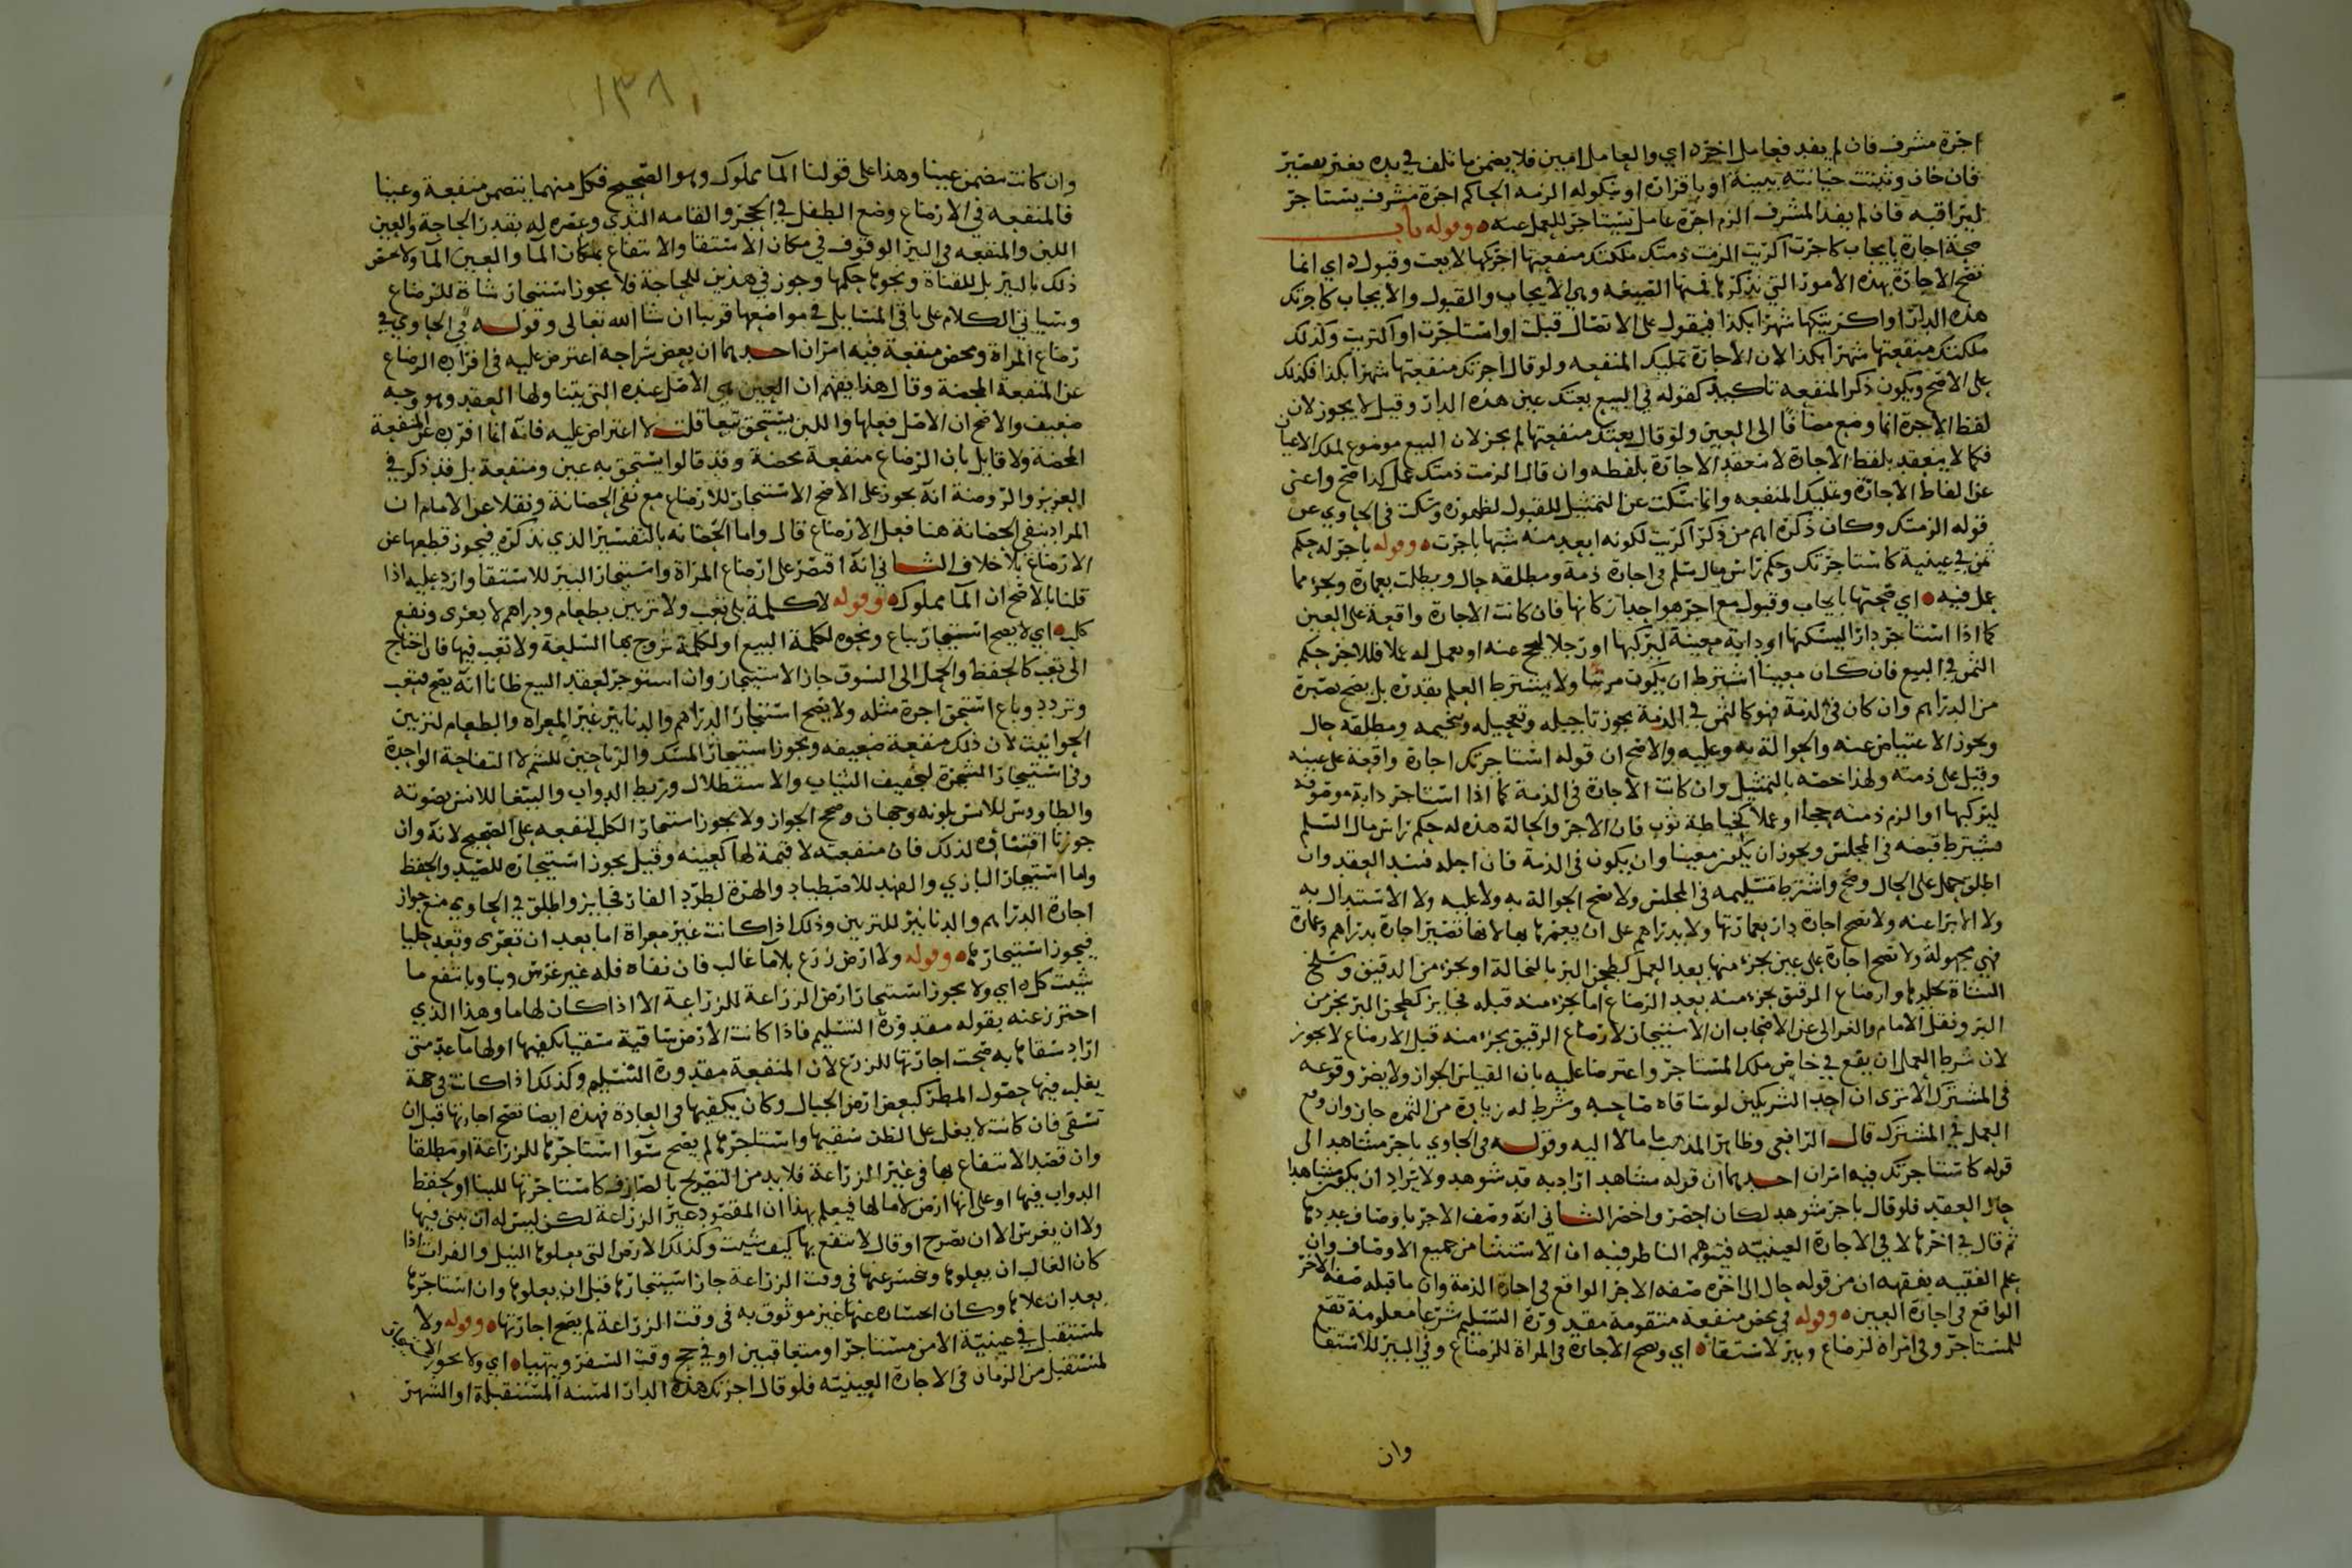 اجرة مشرف فان لم يفد فعامل اخره اي والعامل امين فلا يضمن ما تلف في يده بغير تقصير
فان خان وثبتت خيانته ببينة او باقراره او بنكوله الزمه الحاكم اجرة مشرف يستاجر
ليراقبه فان لم يفد المشرف الزم اجرة عامل يستاجر للعمل عنه وقوله باب
صحة اجارة بايجاب كاجرت اكريت الزمت ذمتك ملكتك منفعتها اجرتكها لا بعت وقبول اي انما
تصح الاجارة بهذه الامور التي نذكرها فمنها الصيغه وهي الايجاب والقبول والايجاب كاجرتك
هذه الدار او اكريتكها شهرا بكذا فيقول على الاتصال قبلت او استاجرت او اكتريت وكذلك
ملكتك منفعتها شهرا بكذا لان الاجارة تمليك المنفعه ولو قال اجرتك منفعتها شهرا بكذا فكذلك
على الاصح ويكون ذكر المنفعه تاكيدا كقوله في البيع بعتك عين هذه الدار وقيل لا يجوز لان
لفظ الاجرة انما وضع مضافا الى العين ولو قال بعتك منفعتها لم يجز لان البيع موضوع لملك الاعيان
فكما لا ينعقد بلفظ الاجارة لا تنعقد الاجارة بلفظه وان قال الزمت ذمتك عمل كذا صح واغنى
عن الفاظ الاجارة وتمليك المنفعه وانما سكت عن التمثيل للقبول لظهوره وسكت في الحاوي عن
قوله الزمتك وكان ذكره اهم من ذكر اكريت لكونه ابعد منه شبها باجرت وقوله باجر له حكم
ثمن في عينية كاستاجرتك وحكم راس مال سلم في اجارة ذمة ومطلقه حال وبطلت بعمارة وبجزء مما
عمل فيه اي صحتها بايجاب وقبول مع اجر هو احد اركانها فان كانت الاجارة واقعة على العين
كما اذا استاجر دارا ليسكنها او دابة معينة ليركبها او رجلا ليحج عنه او يعمل له عملا فللاجر حكم
الثمن في البيع فان كان معينا اشترط ان يكون مرئيا ولا يشترط العلم بقدره بل يصح بصبرة
من الدراهم وان كان في الذمة فهو كالثمن في الذمة يجوز تاجيله وتعجيله وتنجيمه ومطلقه حال
ويجوز الاعتياض عنه والحوالة به وعليه والاصح ان قوله استاجرتك اجارة واقعة على عينه
وقيل على ذمته ولهذا خصه بالتمثيل وان كانت الاجارة في الذمة كما اذا استاجر دابة موصوفه
ليركبها او الزم ذمته حجا او عملا كخياطة ثوب فان الاجر والحالة هذه له حكم راس مال السلم
فيشترط قبضه في المجلس ويجوز ان يكون معينا وان يكون في الذمة فان اجله فسد العقد وان
اطلق حمل على الحال وصح واشترط تسليمه في المجلس ولا تصح الحوالة به ولا عليه ولا الاستبدال به
ولا الابرا عنه ولا تصح اجارة دار بعمارتها ولا بدراهم على ان يعمرها بها لانها تصير اجارة بدراهم وعمارة
فهي مجهولة ولا تصح اجارة على عين بجزء منها بعد العمل كطحن البر بالنخالة او بجزء من الدقيق وسلخ
الشاة بجلدها وارضاع الرقيق بجزء منه بعد الرضاع اما بجزء منه قبله فجايز كطحن البر بجزء من
البر ونقل الامام والغزالي عن الاصحاب ان الاستيجار لارضاع الرقيق بجزء منه قبل الارضاع لا يجوز
لان شرط العمل ان يقع في خاص ملك المستاجر واعترضا عليه بان القياس الجواز ولا يضر وقوعه
في المشترك الا ترى ان احد الشريكين لو ساقاه صاحبه وشرط له زيادة من الثمره جاز وان وقع
العمل في المشترك قال الرافعي وظاهر المذهب ما مالا اليه وقوله في الحاوي باجر مشاهد الى
قوله كاستاجرتك فيه امران احدهما ان قوله مشاهد اراد به قد شوهد ولا يراد ان يكون مشاهدا
حال العقد فلو قال باجر شوهد لكان اخصر واخصر الثاني انه وصف الاجر باوصاف عددها
ثم قال في اخرها لا في الاجارة العينيه فيتوهم الناظر فيه ان الاستثنا من جميع الاوصاف وان
علم الفقيه بفقهه ان من قوله حال الى اخره صفه الاجر الواقع في اجارة الذمة وان ما قبله صفه الاجر
الواقع في اجارة العين وقوله في محض منفعة متقومة مقدورة التسليم شرعا معلومة تقع
للمستاجر وفي امراة لرضاع وبير لاستقا اي وتصح الاجارة في المراة للرضاع وفي البير للاستقا
وان
١٣٨
وان كانت تتضمن عينا وهذا على قولنا الما مملوك وهو الصحيح فكل منهما يتضمن منفعة وعينا
فالمنفعه في الارضاع وضع الطفل في الحجر والقامه الثدي وعصره له بقدر الحاجة والعين
اللبن والمنفعه في البير الوقوف في مكان الاستقا والانتفاع بمكان الما والعين الما ولا يختص
ذلك بالبير بل للقناة ونحوها حكمها وجوز في هذين للحاجة فلا يجوز استيجار شاة للرضاع
وسياتي الكلام على باقي المسايل في مواضعها قريبا ان شا الله تعالى وقوله في الحاوي في
رضاع المراة ومحض منفعة فيه امران احدهما ان بعض شراحه اعترض عليه في افراده الرضاع
عن المنفعة المحضة وقال هذا يفهم ان العين هي الاصل عنده التي يتناولها العقد وهو وجه
ضعيف والاصح ان الاصل فعلها واللبن يستحق تبعا قلت لا اعتراض عليه فانه انما افرده عن المنفعة
المحضة ولا قايل بان الرضاع منفعة محضة وقد قالوا يستحق به عين ومنفعة بل قد ذكر في
العزيز والروضة انه يجوز على الاصح الاستيجار للارضاع مع نفي الحضانة ونقلا عن الامام ان
المراد بنفي الحضانة هنا فعل الارضاع قال واما الحضانه بالتفسير الذي نذكره فيجوز قطعها عن
الارضاع بلا خلاف الثاني انه اقتصر على ارضاع المراة واستيجار البير للاستقا وارد عليه اذا
قلنا بالاصح ان الما مملوك وقوله لا كلمة بلا تعب ولا تزيين بطعام ودراهم لا بعرى ونفع
كلب اي لا يصح استيجار بياع ونحوه لكلمة البيع او لكلمة تروج بها السلعة ولا تعب فيها فان احتاج
الى تعب كالحفظ والحمل الى السوق جاز الاستيجار وان استوجر لعقد البيع ظانا انه يصح فتعب
وتردد وباع استحق اجرة مثله ولا يصح استيجار الدراهم والدنانير غير المعراه والطعام لتزيين
الحوانيت لان ذلك منفعة ضعيفه ويجوز استيجار المسك والرياحين للشم لا التفاحة الواحدة
وفي استيجار الشجرة لتجفيف الثياب والاستظلال وربط الدواب والببغا للانس بصوته
والطاووس للانس بلونه وجهان وصحح الجواز ولا يجوز استيجار الكلب لنفعه على الصحيح لانه وان
جوزنا اقتناؤه لذلك فان منفعته لا قيمة لها كعينه وقيل يجوز استيجاره للصيد والحفظ
واما استيجار البازي والفهد للاصطياد والهرة لطرد الفار فجايز واطلق في الحاوي منع جواز
اجارة الدراهم والدنانير للتزيين وذلك اذا كانت غير معراة اما بعد ان تعرى وتعد حليا
فيجوز استيجارها وقوله ولا ارض زرع بلا ما غالب فان نفاه فله غير غرس وبنا وبانتفع ما
شيت كل اي ولا يجوز استيجار ارض الزراعة للزراعة الا اذا كان لها ما وهذا الذي
احترز عنه بقوله مقدورة التسليم فاذا كانت الارض ساقية سقيا يكفيها او لها ما عد متى
اراد سقاها به صحت اجارتها للزرع لان المنفعة مقدورة التسليم وكذلك اذا كانت في جهة
يغلب فيها حصول المطر كبعض ارض الجبال وكان يكفيها في العادة فهذه ايضا تصح اجارتها قبل ان
تسقى فان كانت لا يغلب على الظن سقيها واستاجرها لم يصح سوا استاجرها للزراعة او مطلقا
وان قصد الانتفاع بها في غير الزراعة فلا بد من التصريح بالصارف كاستاجرتها للبنا او لحفظ
الدواب فيها او على انها ارض لا ما لها فيعلم بهذا ان المقصود غير الزراعة لكن ليس له ان يبني فيها
ولا ان يغرس الا ان صرح او قال لانتفع بها كيف شيت وكذلك الارض التي يعلوها النيل والفرات اذا
كان الغالب ان يعلوها وينحسر عنها في وقت الزراعة جاز استيجارها قبل ان يعلوها وان استاجرها
بعد ان علاها وكان انحساره عنها غير موثوق به في وقت الزراعة لم يصح اجارتها وقوله ولا
لمستقبل في عينية الا من مستاجر او متعاقبين او في حج وقت السفر ويتهيا اي ولا يجوز
لمستقبل من الزمان في الاجارة العينيه فلو قال اجرتك هذه الدار السنه المستقبلة او الشهر